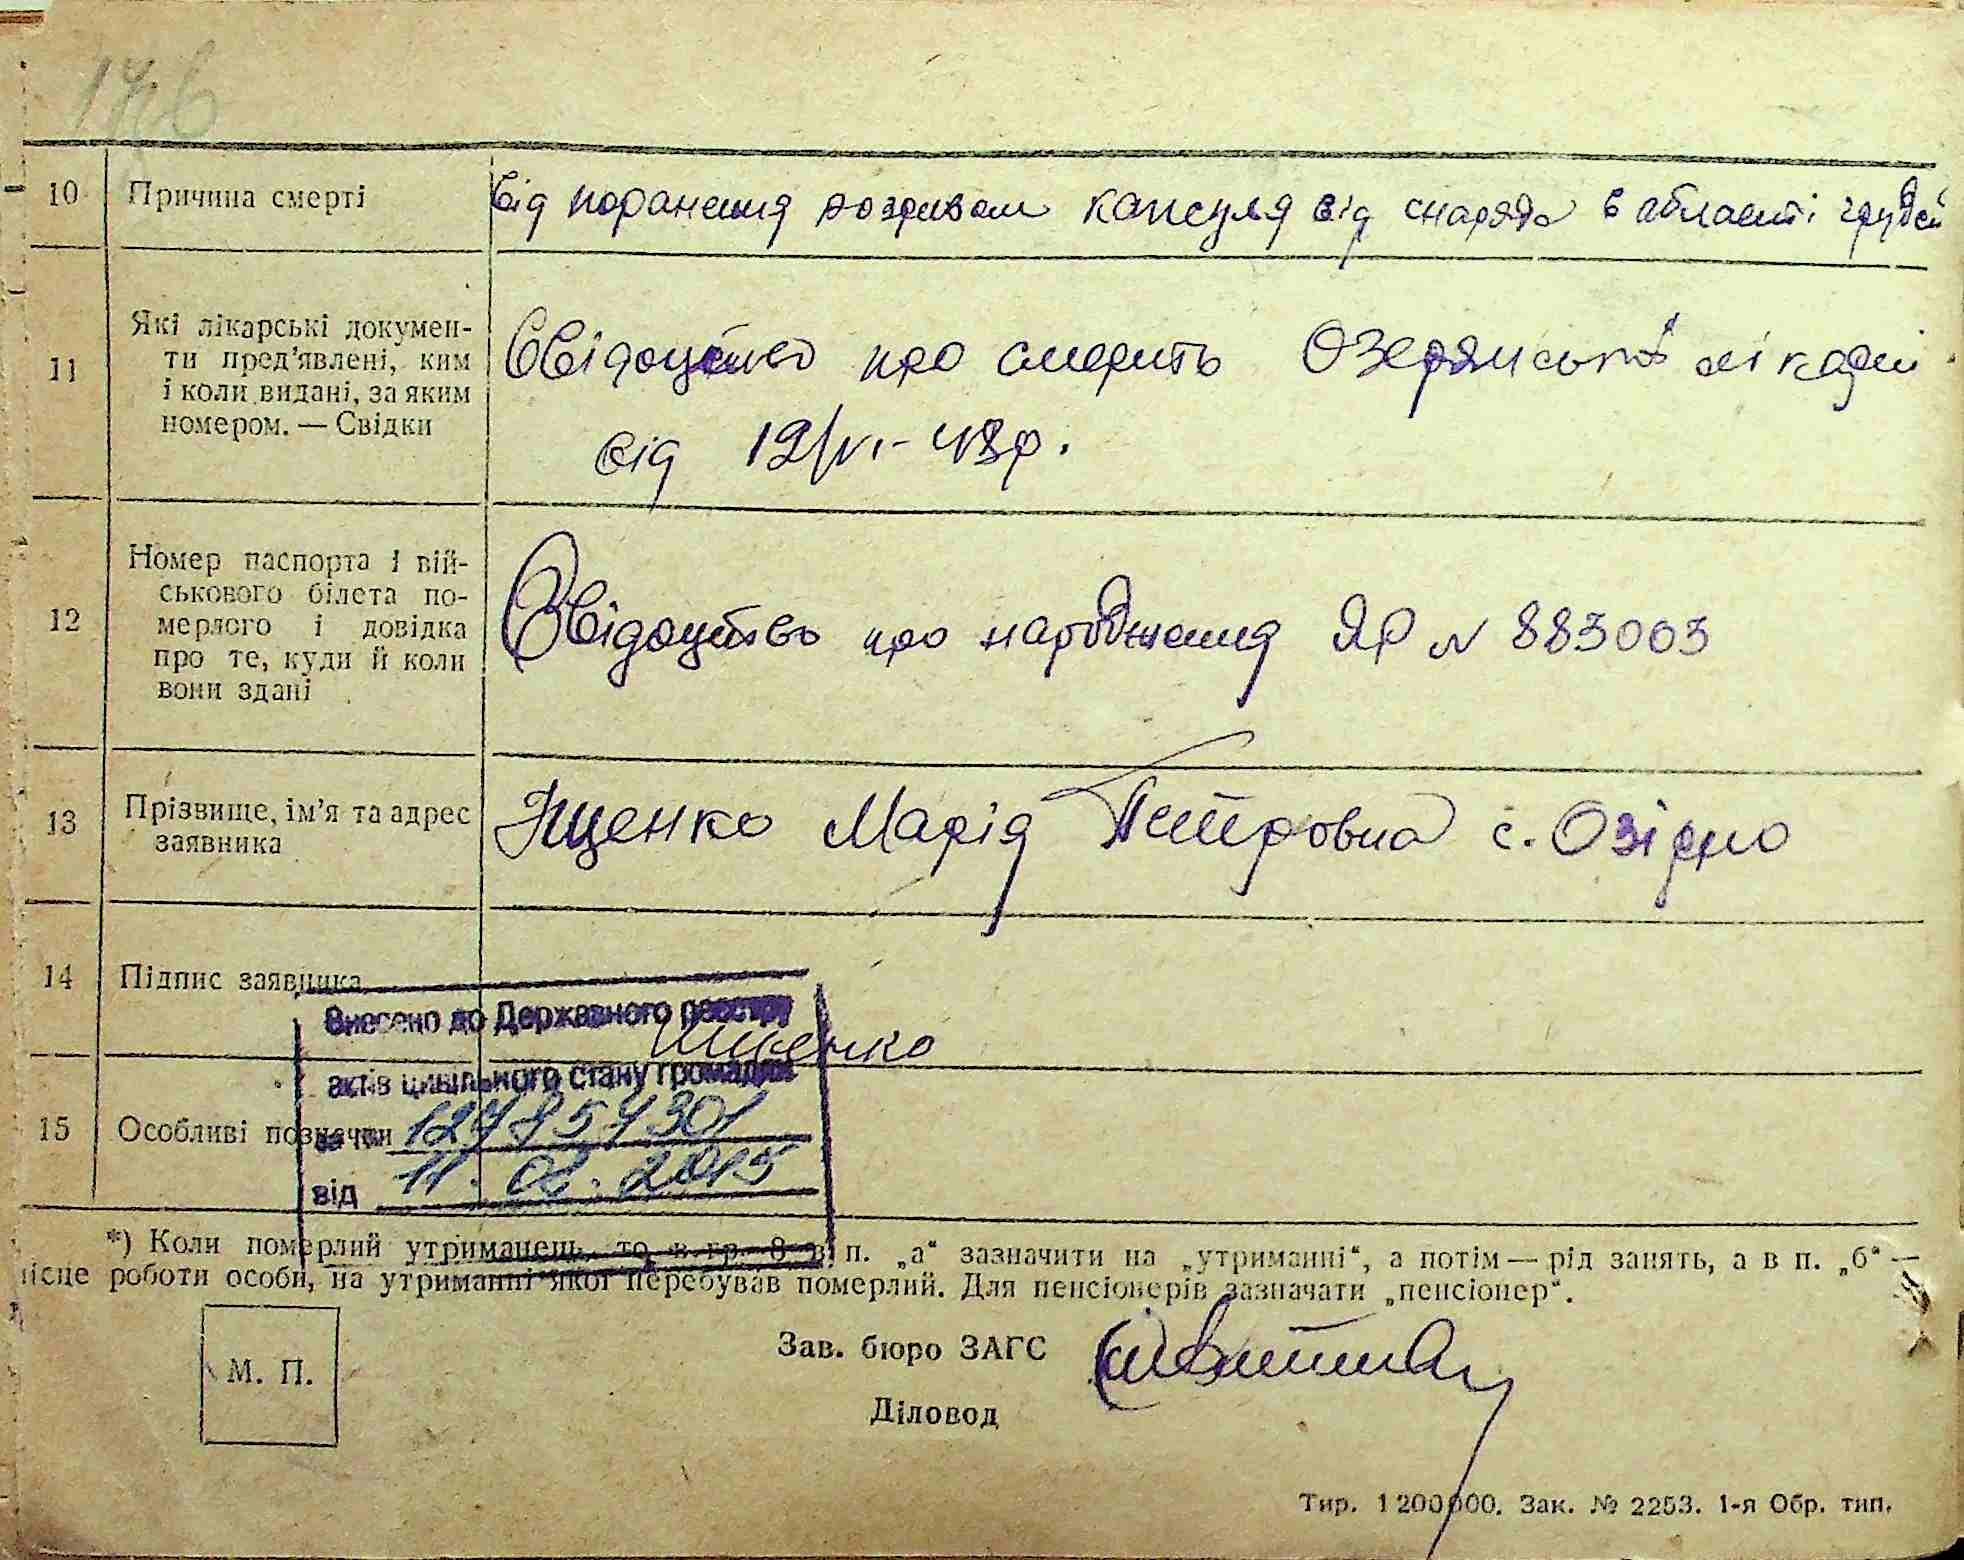 146
10 Причина смерті від поранения розривом капсуля від снаряда в області грудей
11 Які лікарські докумен-
ти пред'явлені, ким
і коли видані, за яким
номером. — Свідки
Свідоцтво про смерть Озерянської лікарні
від 12/VI-48р.
12 Номер паспорта і вій-
ськового білета по-
мерлого і довідка
про те, куди й коли
вони здані
Свідоцтво про народження ЯР № 883003
13 Прізвище, ім'я та адрес
заявника
Іщенко Марія Петровна с. Озірно
14 Підпис заявника
Внесено до Державного реєстру
Іщенко
актів цивільного стану громадян
15 Особливі позначки
за № 127857301
від 11.02.2015
*) Коли померлий утриманець, то в гр. 8 в п. „а“ зазначити на „утриманні“, а потім — рід занять, а в п. „б“ —
місце роботи особи, на утриманні якої перебував померлий. Для пенсіонерів зазначати „пенсіонер“.
М. П.
Зав. бюро ЗАГС
Діловод
Тир. 1200000. Зак. № 2253. 1-я Обр. тип.